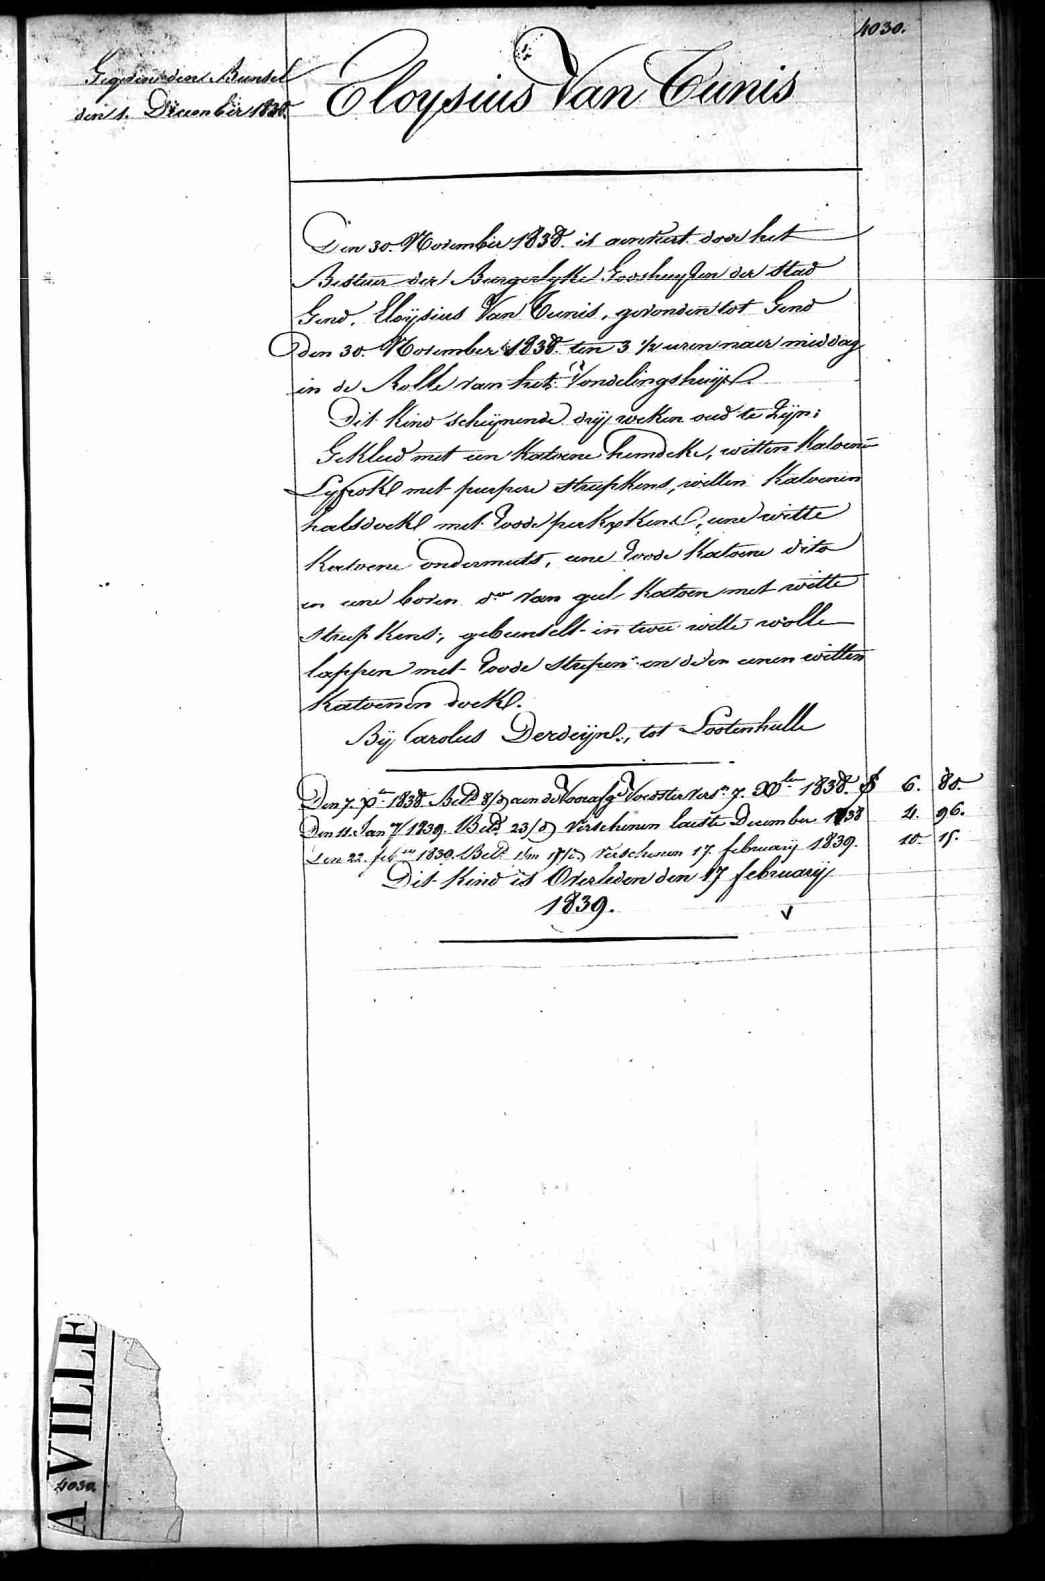 4030.
Gegeven den Bunsel
den 1. December 1838.
Eloysius Van Tunis
Den 30. November 1838. is aenveert door het
Bestuer der Burgerlyke Godshuyzen der stad
Gend, Eloÿsius Van Tunis, gevonden tot Gend
den 30. November 1838. ten 3 ½ uren naer middag
in de Rolle van het Vondelingshuÿs.
Dit kind scheÿnende drÿ weken oud te zÿn;
Gekleed met een katoene hemdeke, witten katoene
Lyfrok met purpere streepkens, witten katoenen
halsdoek met roode perkxkens, eene witte
katoene ondermuts, eene roode katoene dito
en eene boven do van geel katoen met witte
streepkens, gebunselt in twee witte wolle
lappen met roode strepen en in eenen witten
katoenen doek.
Bÿ Carolus Derdeÿn, tot Lootenhulle
Den 7. Xr 1838. Betd 8/d aen de Voorafge Voedster vers. 7. Xber 1838. f 6. 80.
Den 11. Jan 1839. Betd 23/d verschenen laeste December 1838 4. 96.
Den 22. feb 1839. Betd 1/m 17/d verschenen 17 februarij 1839. 10. 15.
Dit kind is Overleden den 17 februarÿ
1839.
A VILLE
4030.